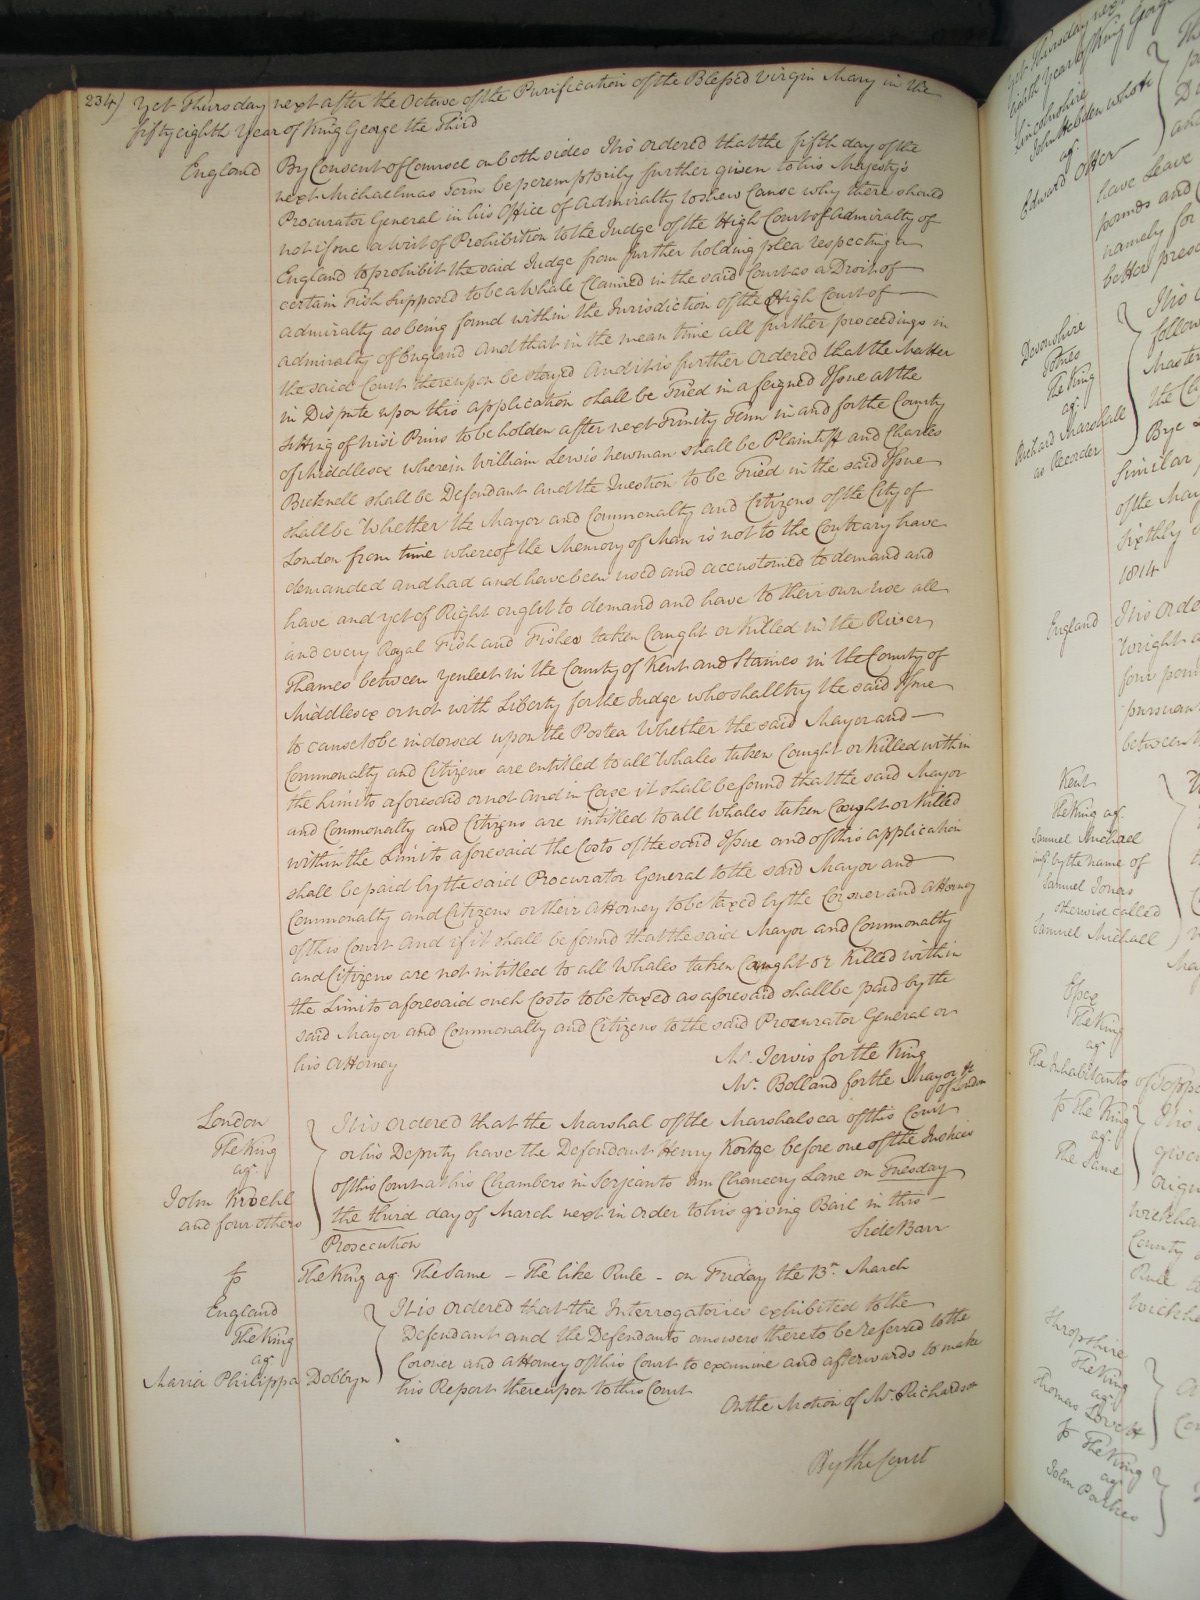 234) Yet Thursday next after the Octave of the Purification of the Blessed Virgin Mary in the
fifty eighth Year of King George the Third
England By Consent of Counsel on both sides It is ordered that the fifth day of the
next Michaelmas Term be peremptorily further given to his Majesty's
Procurator General in his Office of Admiralty to shew Cause why there should
not issue a Writ of Prohibition to the Judge of the High Court of Admiralty of
England to prohibit the said Judge from further holding plea respecting a
certain Fish supposed to be a Whale Claimed in the said Court as a Droit of
Admiralty as being found within the Jurisdiction of the High Court of
Admiralty of England And that in the mean time all further proceedings in
the said Court thereupon be stayed And it is further Ordered that the Matter
in Dispute upon this application shall be Tried in a feigned Issue at the
Sitting of Nisi Prius to be holden after next Trinity Term in and for the County
of Middlesex wherein William Lewis Newman shall be Plaintiff and Charles
Bicknell shall be Defendant And the Question to be Tried in the said Issue
shall be "Whether the Mayor and Commonalty and Citizens of the City of
London from time whereof the Memory of Man is not to the Contrary have
demanded and had and have been used and accustomed to demand and
have and yet of Right ought to demand and have to their own use all
and every Royal Fish and Fishes taken Caught or Killed in the River
Thames between Yenleet in the County of Kent and Staines in the County of
Middlesex or not with Liberty for the Judge who shall try the said Issue
to cause to be indorsed upon the Postea Whether the said Mayor and
Commonalty and Citizens are entitled to all Whales taken Caught or Killed within
the Limits aforesaid or not And in Case it shall be found that the said Mayor
and Commonalty and Citizens are intitled to all Whales taken Caught or Killed
within the Limits aforesaid the Costs of the said Issue and of this application
shall be paid by the said Procurator General to the said Mayor and
Commonalty and Citizens or their Attorney to be taxed by the Coroner and Attorney
of this Court And if it shall be found that the said Mayor and Commonalty
and Citizens are not intitled to all Whales taken Caught or Killed within
the Limits aforesaid such Costs to be taxed as aforesaid shall be paid by the
said Mayor and Commonalty and Citizens to the said Procurator General or
his Attorney
Mr. Jervis for the King
Mr. Bolland for the Mayor &c
of London
London
The King
agt
John Kroehl
and four others
It is ordered that the Marshal of the Marshalsea of this Court
or his Deputy have the Defendant Henry Kortge before one of the Justices
of this Court at his Chambers in Serjeants Inn Chancery Lane on Tuesday
the third day of March next in order to his giving Bail in this
Prosecution
Side Barr
So The King agt The Same - The like Rule - on Friday the 13th March
England
The King
agt
Maria Philippa Dobbyn
It is ordered that the Interrogatories exhibited to the
Defendant and the Defendants answers thereto be referred to the
Coroner and Attorney of this Court to examine and afterwards to make
his Report thereupon to this Court
On the Motion of Mr. Richardson
By the Court
Yet Thursday next
Lincolnshire
John Hebden
agt
Edward Otter
have leave
pounds and
namely for
better pres
Devonshire
Totnes
The King
agt
Richard Marshall
as Recorder
It is
follow
Master
Bye
Similar
of the May
Sixthly
1814
England It is Orde
Wright
four poun
pursuant
between
Kent
The King agt
Samuel Michael
by the name of
Samuel Jones
otherwise called
Samuel Michall
May
Essex
The King
agt
The Inhabitants of Topp
So The King
agt
The Same
It is
given
Origin
Wickha
County
Rule
Wickha
Shropshire
The King
agt
Thomas Lovett
So The King
agt
John Parkes